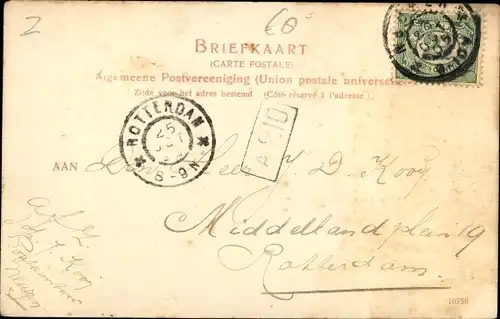 2
60
BRIEFKAART
(CARTE POSTALE)
Algemeene Postvereeniging (Union postale universelle)
Zijde voor het adres bestemd (Côté réservé à l'adresse).
ROTTERDAM
25
8-9N
A 210
AAN Den Heer J. D. Kooy
Middellandplein 19
Rotterdam.
Kooij
10758